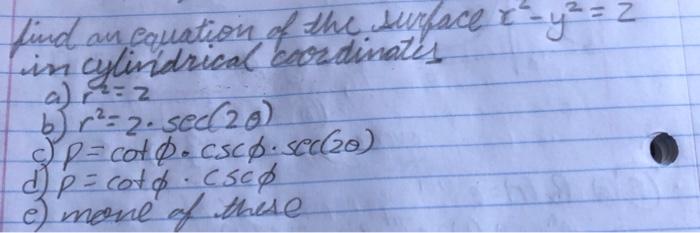 find an equation of the surface x² - y² = z
in cylindrical coordinates
a) r² = z
b) r² = z · sec(2θ)
c) ρ = cot φ · csc φ · sec(2θ)
d) ρ = cot φ · csc φ
e) none of these